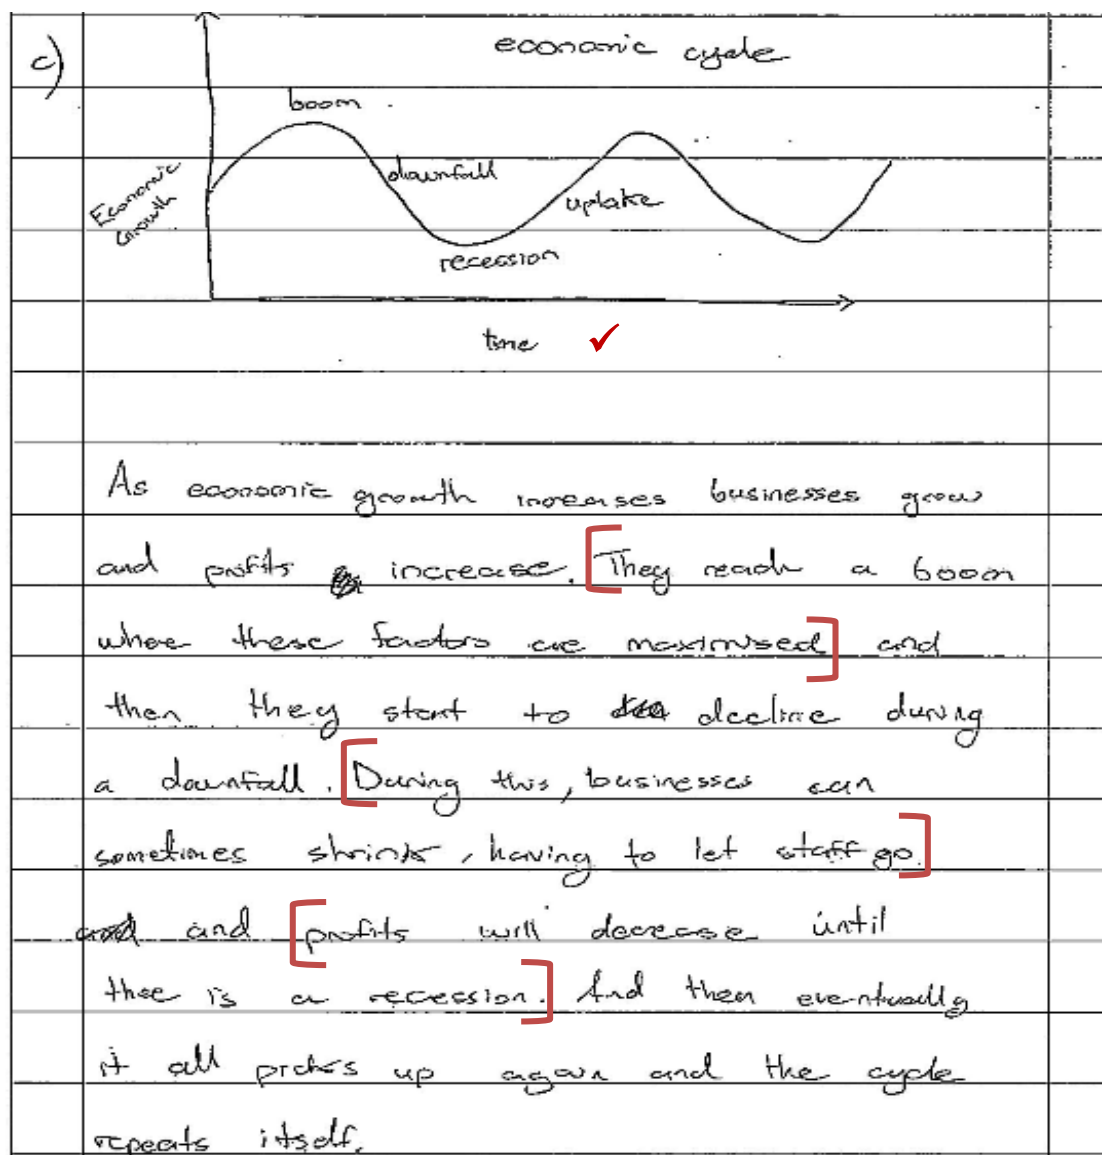 c)
economic cycle
boom
downfall
Economic
Growth
uptake
recession
time
As economic growth increases businesses grow
and profits increase. They reach a boom
where these factors are maximised and
then they start to decline during
a downfall. During this, businesses can
sometimes shrink, having to let staff go
and profits will decrease until
there is a recession. And then eventually
it all picks up again and the cycle
repeats itself.